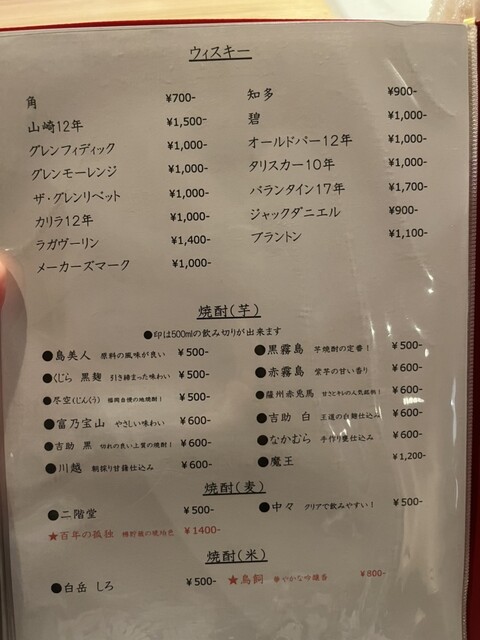 ウィスキー
角 ¥700-
山崎12年 ¥1,500-
グレンフィディック ¥1,000-
グレンモーレンジ ¥1,000-
ザ・グレンリベット ¥1,000-
カリラ12年 ¥1,000-
ラガヴーリン ¥1,400-
メーカーズマーク ¥1,000-
知多 ¥900-
碧 ¥1,000-
オールドパー12年 ¥1,000-
タリスカー10年 ¥1,000-
バランタイン17年 ¥1,700-
ジャックダニエル ¥900-
ブラントン ¥1,100-
焼酎(芋)
●印は500mlの飲み切りが出来ます
●島美人 原料の風味が良い ¥500-
●くじら 黒麹 引き締まった味わい ¥500-
●尽空(じんくう) 福岡自慢の地焼酎! ¥500-
●富乃宝山 やさしい味わい ¥600-
●吉助 黒 切れの良い上質の焼酎! ¥600-
●川越 朝採り甘藷仕込み ¥600-
●黒霧島 芋焼酎の定番! ¥500-
●赤霧島 紫芋の甘い香り ¥600-
●薩州赤兎馬 甘さとキレの人気銘柄! ¥600-
●吉助 白 王道の白麹仕込み ¥600-
●なかむら 手作り甕仕込み ¥600-
●魔王 ¥1,200-
焼酎(麦)
●二階堂 ¥500-
★百年の孤独 樽貯蔵の琥珀色 ¥1400-
●中々 クリアで飲みやすい! ¥500-
焼酎(米)
●白岳 しろ ¥500-
★鳥飼 華やかな吟醸香 ¥800-